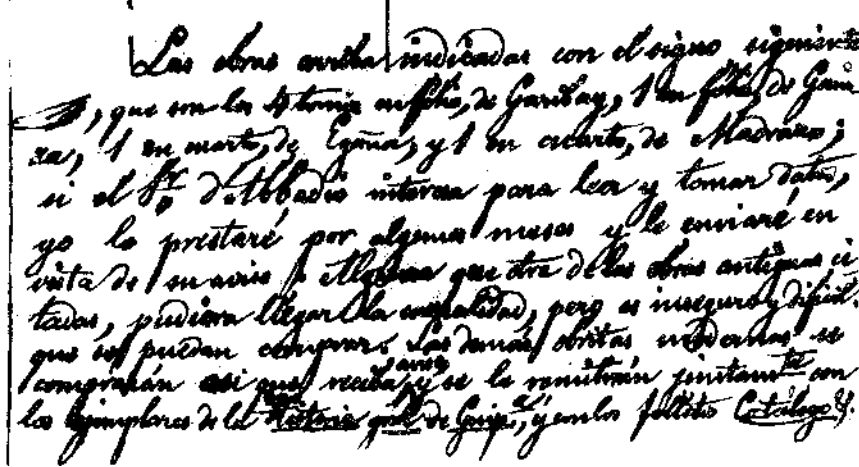 Las obras arriba indicadas con el signo siguiente
, que son los 4 tomos en folio, de Garibay, 1 en folio, de Gain
za, 1 en cuarto, de Egaña, y 1 en cuarto, de Madrazo;
si el Sr. D'Abbadie interesa para leer y tomar datos,
yo le prestaré por algunos meses y le enviaré en
vista de su aviso. Alguna que otra de las obras antiguas ci
tadas, pudiera llegar la casualidad, pero es inseguro y dificil,
que se puedan comprar. Las demás obritas modernas se
comprarán asi que reciba aviso y se le remitirán juntamte con
los ejemplares de la Historia gral de Guipa, y con los folletos Catálogo &.